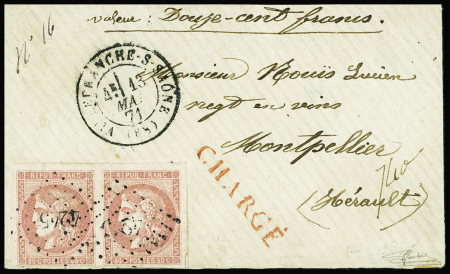 valeur: Douze-cent francs.
N° 16
VILLEFRANCHE-S-SAÔNE (68)
13
MAI
71
Monsieur Rouïs Lucien
negt en vins
Montpellier
(Hérault)
CHARGÉ
REPUB. FRANC. REPUB. FRANC.
4245